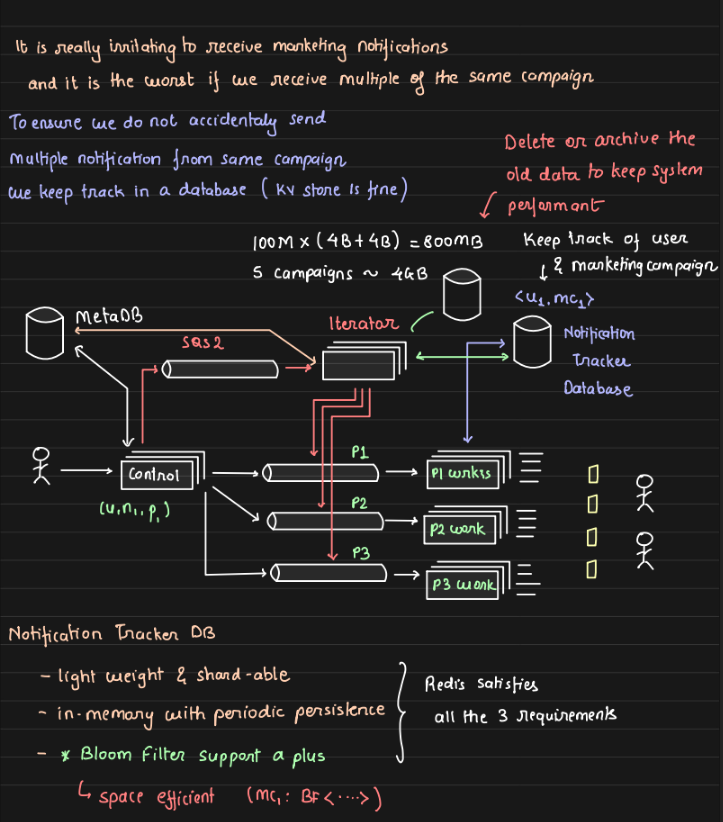 It is really irritating to receive marketing notifications
and it is the worst if we receive multiple of the same campaign
To ensure we do not accidentaly send
multiple notification from same campaign
we keep track in a database ( KV store is fine)
Delete or archive the
old data to keep system
performant
100M x ( 4B + 4B ) = 800MB
5 campaigns ~ 4GB
Keep track of user
& marketing campaign
<u₁, mc₁>
MetaDB
SQS2
Iterator
Notification
Tracker
Database
P1
Control
P1 wrkrs
(u, n₁, p₁)
P2
P2 work
P3
P3 work
Notification Tracker DB
- light weight & shard-able
- in-memory with periodic persistence
- * Bloom Filter support a plus
space efficient (mc₁ : BF<....>)
Redis satisfies
all the 3 requirements